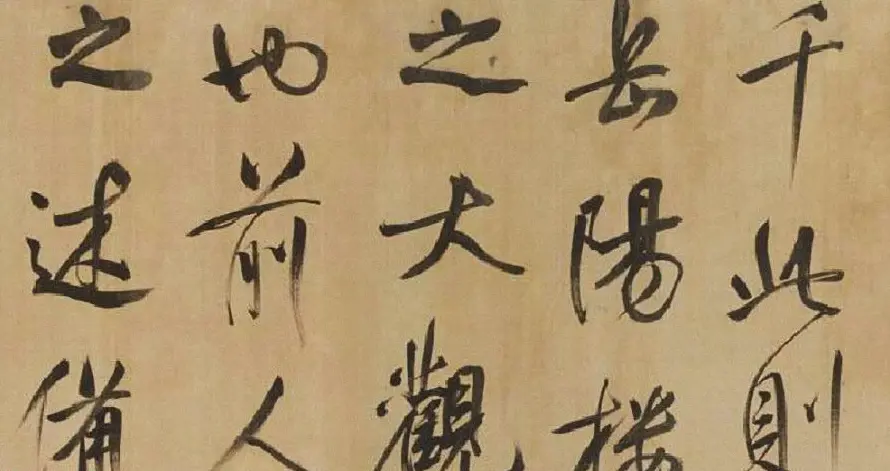 千此則
岳陽樓
之大觀
也前人
之述備